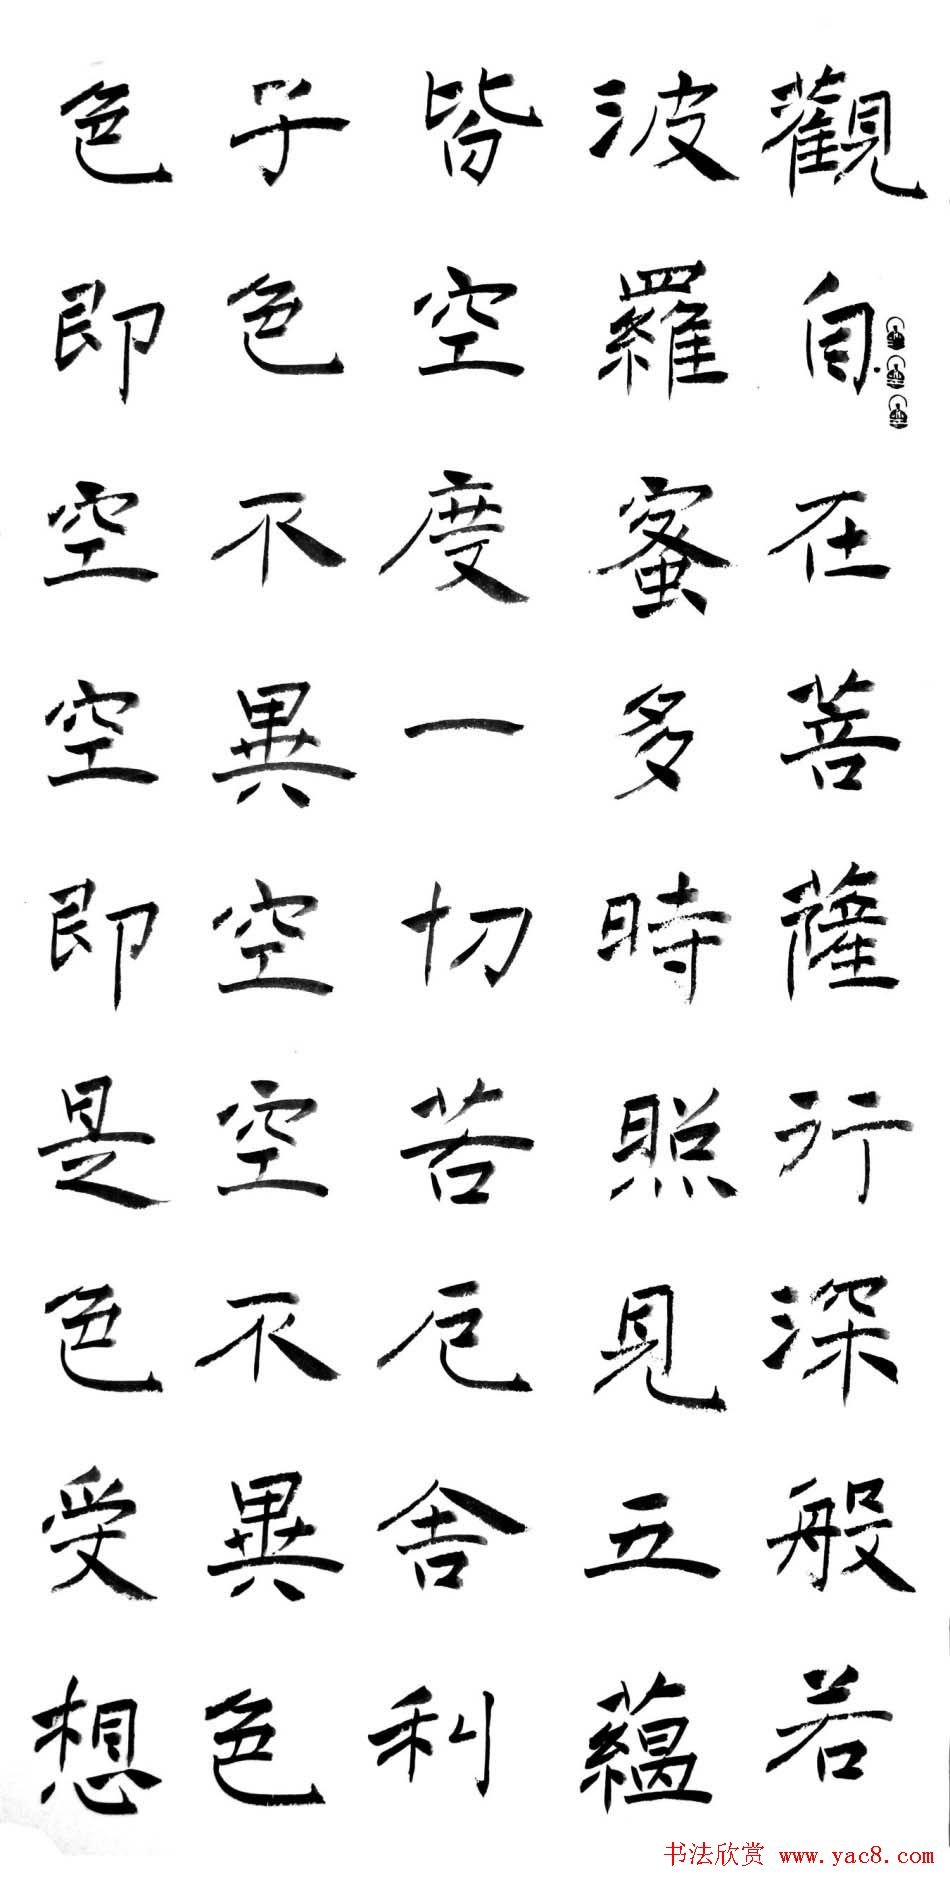 觀自在菩薩行深般若
波羅蜜多時照見五蘊
皆空度一切苦厄舍利
子色不異空空不異色
色即空空即是色受想
书法欣赏 www.yac8.com